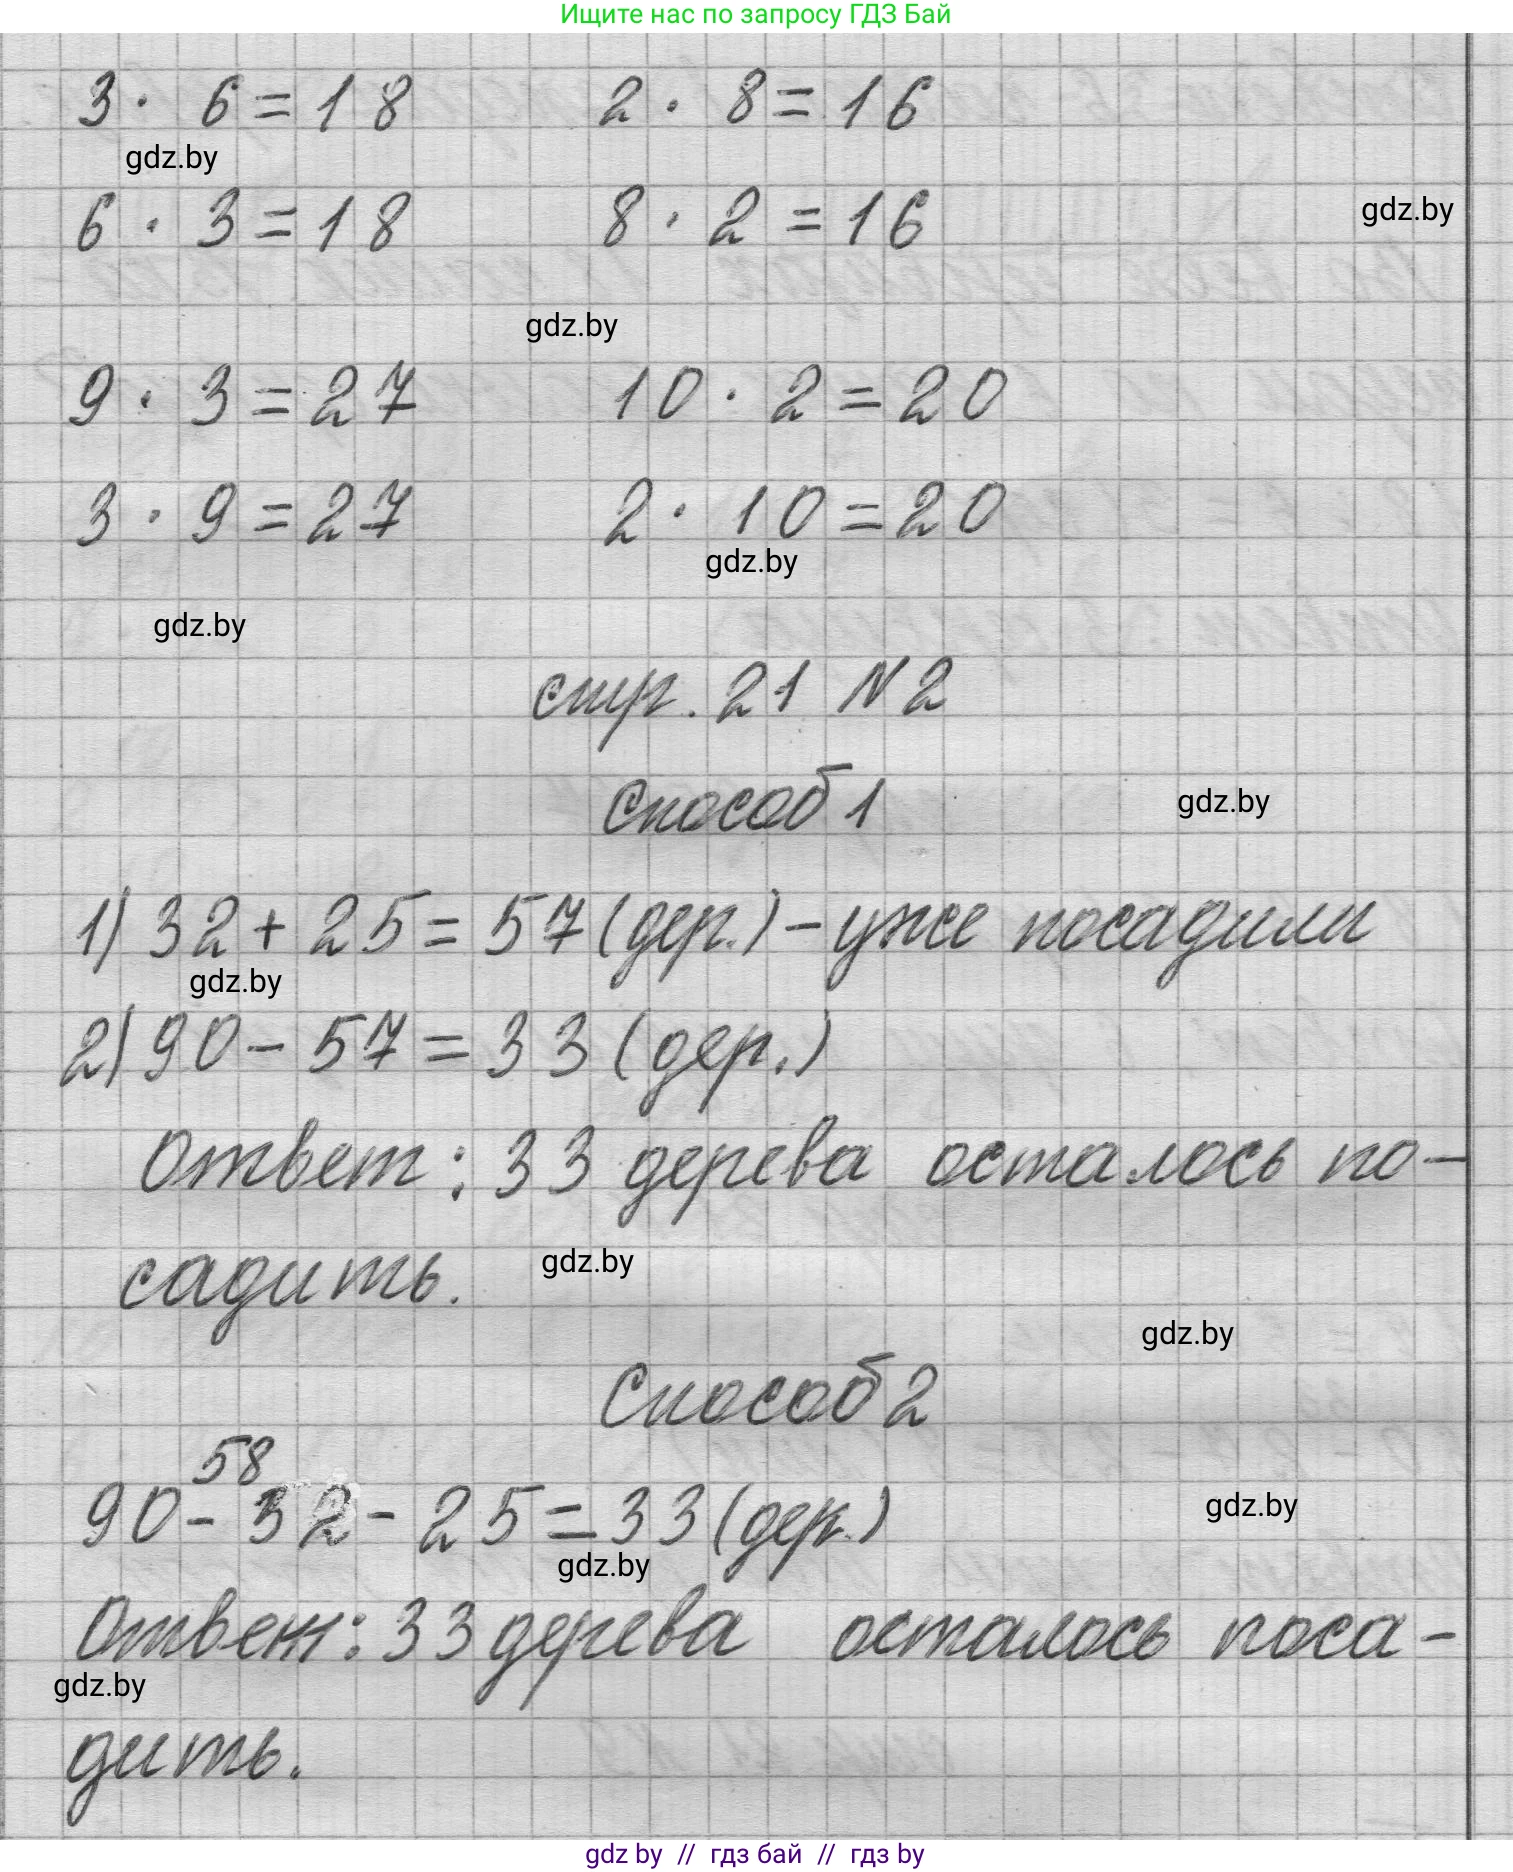 Ищите нас по запросу ГДЗ Бай
3 · 6 = 18 2 · 8 = 16
gdz.by
6 · 3 = 18 8 · 2 = 16 gdz.by
gdz.by
9 · 3 = 27 10 · 2 = 20
3 · 9 = 27 2 · 10 = 20
gdz.by
gdz.by
стр. 21 N 2
Способ 1 gdz.by
1) 32 + 25 = 57 (дер.) – уже посадили
gdz.by
2) 90 – 57 = 33 (дер.)
Ответ: 33 дерева осталось по–
садить. gdz.by
gdz.by
Способ 2
58
90 – 32 – 25 = 33 (дер.) gdz.by
gdz.by
Ответ: 33 дерева осталось поса–
gdz.by
дить.
gdz by // гдз бай // гдз by